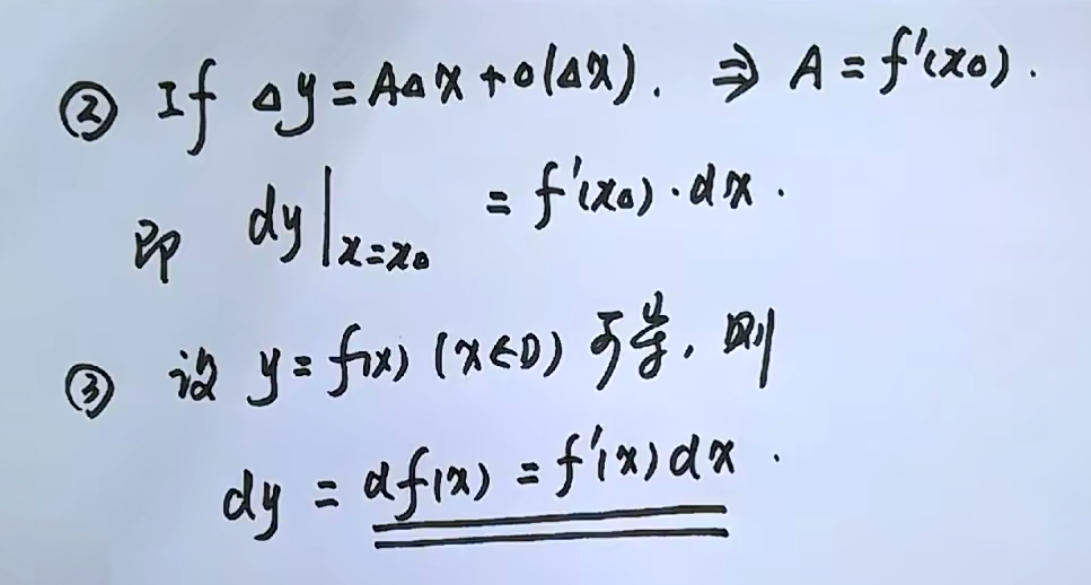 ② If Δy = AΔx + o(Δx). ⇒ A = f'(x₀).
即 dy|ₓ₌ₓ₀ = f'(x₀)·dx.
③ 设 y = f(x) (x∈D) 可导, 则
dy = df(x) = f'(x)dx.